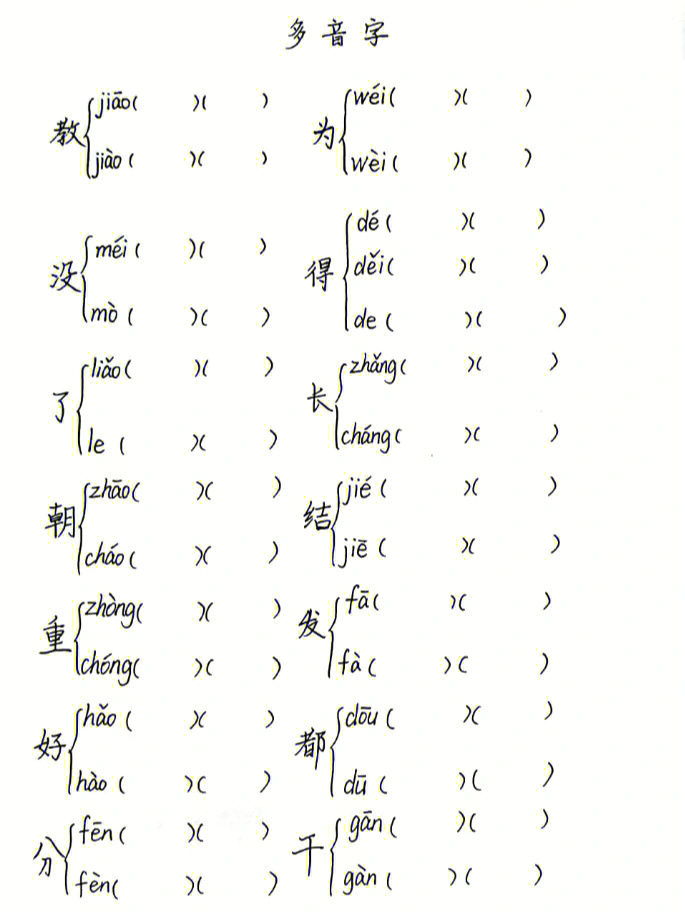 多音字
教 jiāo( )( ) 为 wéi( )( )
jiào( )( ) wèi( )( )
没 méi( )( ) 得 dé( )( )
děi( )( )
mò( )( ) de( )( )
了 liǎo( )( ) 长 zhǎng( )( )
le( )( ) cháng( )( )
朝 zhāo( )( ) 结 jié( )( )
cháo( )( ) jiē( )( )
重 zhòng( )( ) 发 fā( )( )
chóng( )( ) fà( )( )
好 hǎo( )( ) 都 dōu( )( )
hào( )( ) dū( )( )
分 fēn( )( ) 干 gān( )( )
fèn( )( ) gàn( )( )